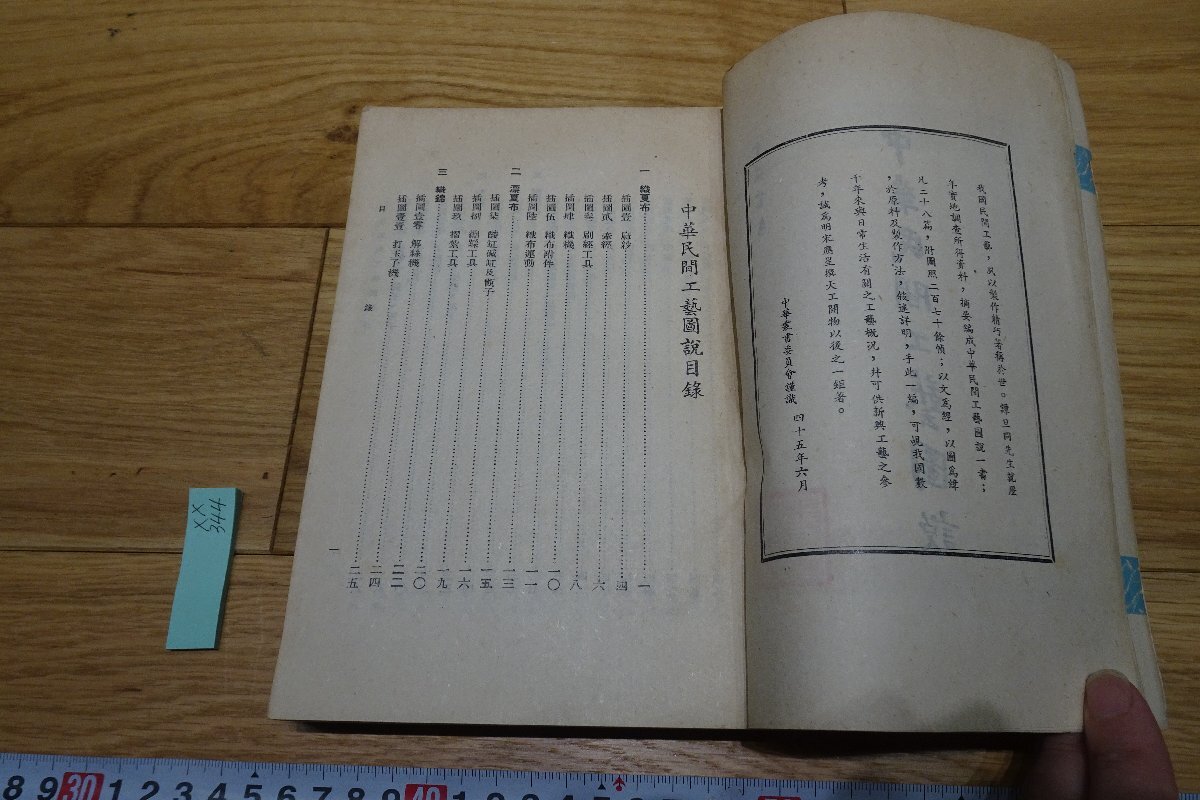 我國民間工藝，夙以製作精巧著稱於世。譚旦冏先生就歷
年實地調查所得資料，摘要編成中華民間工藝圖說一書；
凡二十八篇，附圖照二百七十餘幀；以文為經，以圖為緯
，於原料及製作方法，敍述詳明，手此一編，可覘我國數
千年來與日常生活有關之工藝概況，幷可供新興工藝之參
考，誠為明宋應星撰天工開物以後之一鉅著。
中華叢書委員會謹識 四十五年六月
中華民間工藝圖說目錄
一 織夏布……一
插圖壹 扇紗……四
插圖貳 牽經……六
插圖叁 刷經工具……八
插圖肆 織機……一〇
插圖伍 織布附件……一一
插圖陸 織布運動……一三
二 漂夏布……一五
插圖柒 酸缸鹹缸及甑子……一六
插圖捌 踹踩工具……一九
插圖玖 摺紮工具……二〇
三 織錦……二二
插圖壹零 解絲機……二四
插圖壹壹 打玉子機……二五
目 錄
一
XX
344
8 9 30 1 2 3 4 5 6 7 8 9 40 1 2 3 4 5 6 7 8